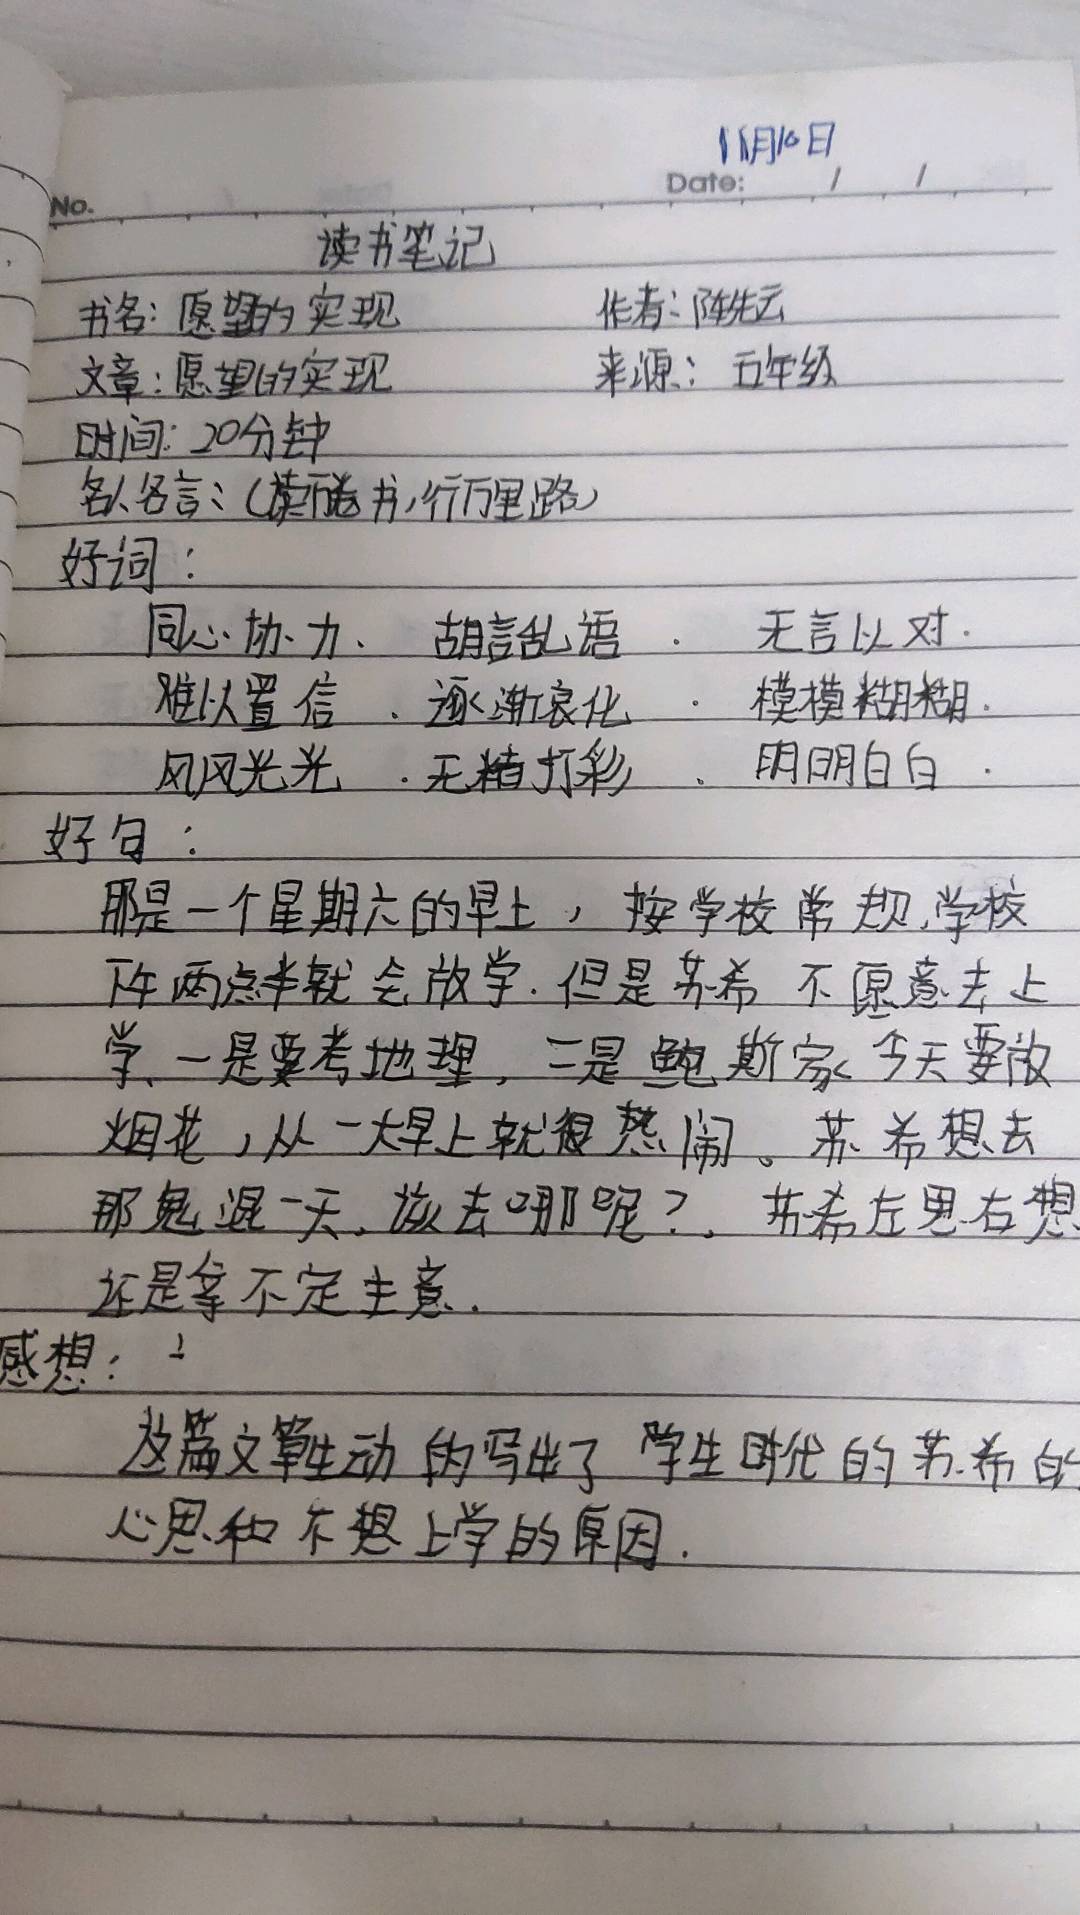 11月10日
No.
Date: / /
读书笔记
书名：愿望的实现 作者：陈先云
文章：愿望的实现 来源：五年级
时间：20分钟
名人名言：（读万卷书，行万里路）
好词：
同心协力、胡言乱语．无言以对．
难以置信．逐渐衰化．模模糊糊．
风风光光．无精打彩、明明白白．
好句：
那是一个星期六的早上，按学校常规，学校
下午两点半就会放学．但是苏希不愿意去上
学、一是要考地理，二是鲍斯家今天要放
烟花，从一大早上就很热闹。苏希想去
那鬼混一天，该去哪呢？，苏希左思右想
还是拿不定主意．
感想：
这篇文章生动的写出了学生时代的苏希的
心思和不想上学的原因．